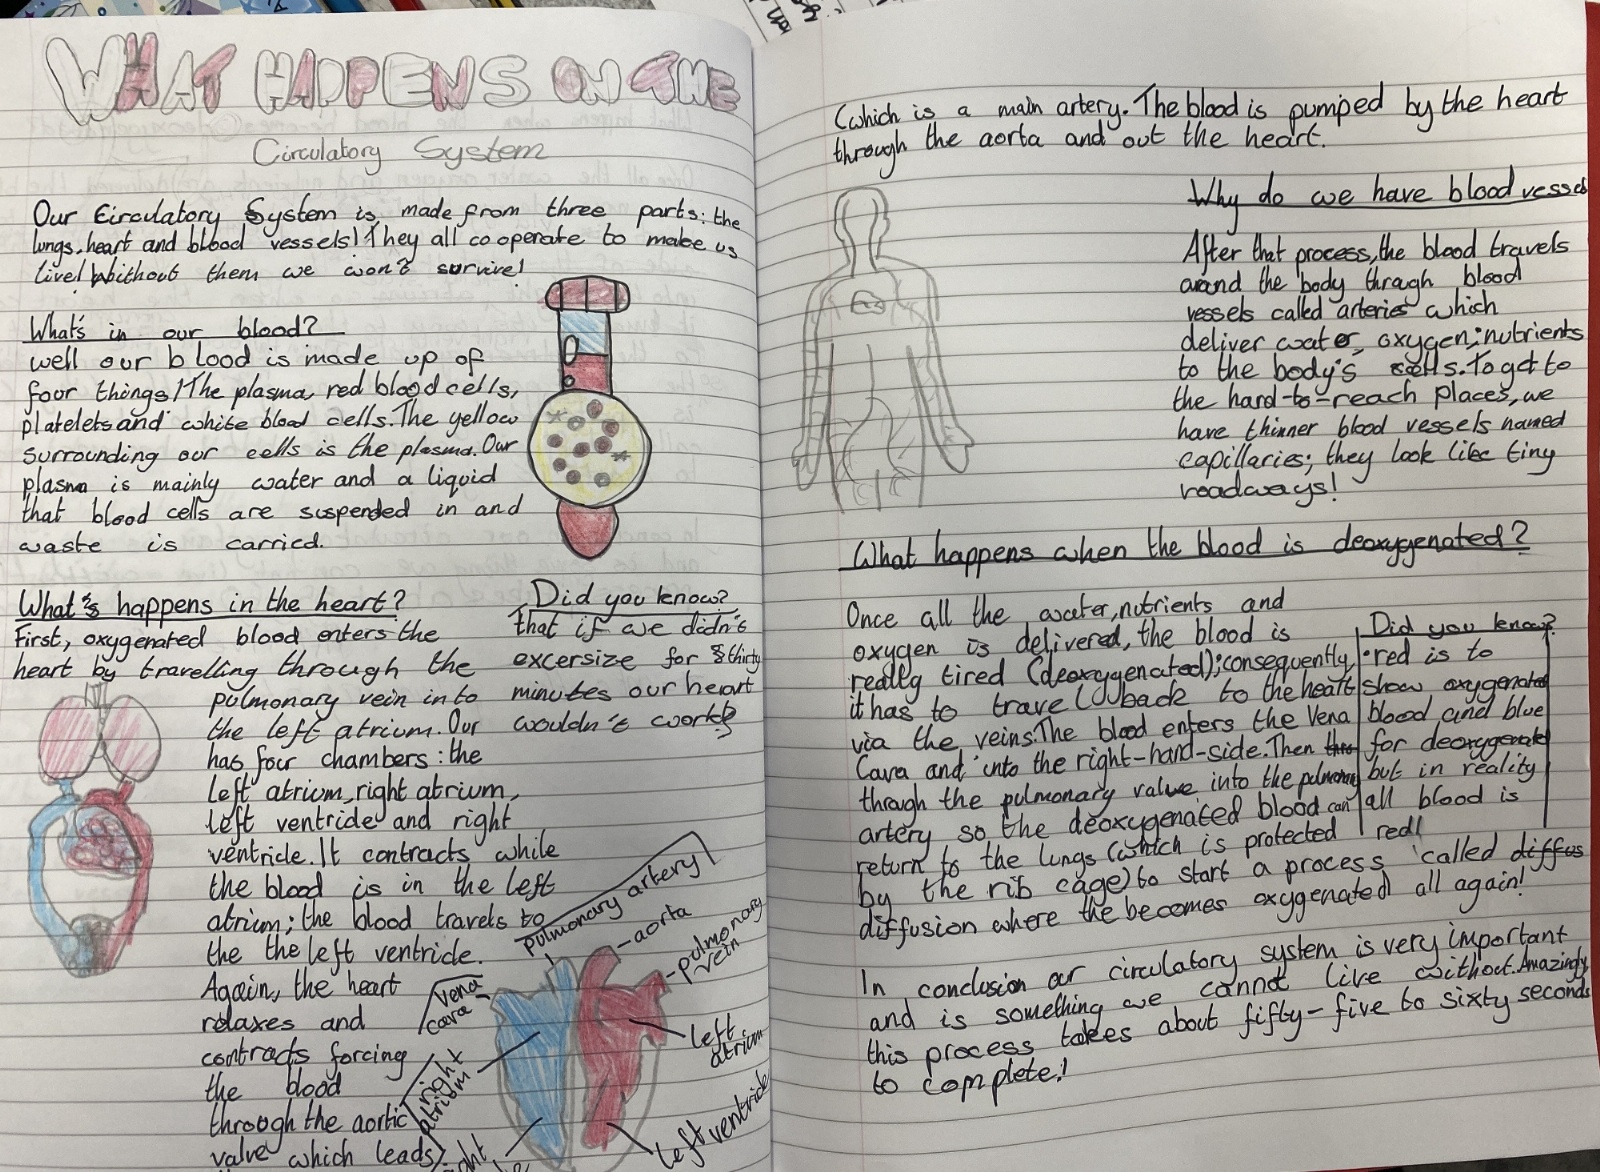 WHAT HAPPENS ON THE
Circulatory System
Our Circulatory System is made from three parts: the
lungs, heart and blood vessels! They all cooperate to make us
live! Without them we won't survive!
What's in our blood?
well our blood is made up of
four things! The plasma, red blood cells,
platelets and white blood cells. The yellow
surrounding our cells is the plasma. Our
plasma is mainly water and a liquid
that blood cells are suspended in and
waste is carried.
What's happens in the heart?
First, oxygenated blood enters the
heart by travelling through the
pulmonary vein into
the left atrium. Our
has four chambers: the
left atrium, right atrium,
left ventricle and right
ventricle. It contracts while
the blood is in the left
atrium; the blood travels to
the the left ventricle.
Again, the heart
relaxes and
contracts forcing
the blood
through the aortic
valve which leads
Did you know?
That if we didn't
excersize for thirty
minutes our heart
wouldn't work?
pulmonary artery
aorta
pulmonary
vein
vena
cava
left
atrium
right
atrium
left ventricle
(which is a main artery. The blood is pumped by the heart
through the aorta and out the heart.
Why do we have blood vessels
After that process, the blood travels
around the body through blood
vessels called arteries which
deliver water, oxygen; nutrients
to the body's cells. To get to
the hard-to-reach places, we
have thinner blood vessels named
capillaries; they look like tiny
roadways!
What happens when the blood is deoxygenated?
Once all the water, nutrients and
oxygen is delivered, the blood is
really tired (deoxygenated); consequently,
it has to travel back to the heart
via the veins. The blood enters the Vena
Cava and into the right-hand-side. Then thro
through the pulmonary valve into the pulmonary
artery so the deoxygenated blood can
return to the lungs (which is protected
by the rib cage) to start a process called diffus
diffusion where the becomes oxygenated all again!
Did you know?
• red is to
show oxygenated
blood and blue
for deoxygenated
but in reality
all blood is
red!
In conclusion our circulatory system is very important
and is something we cannot live without. Amazingly
this process takes about fifty-five to sixty seconds
to complete!